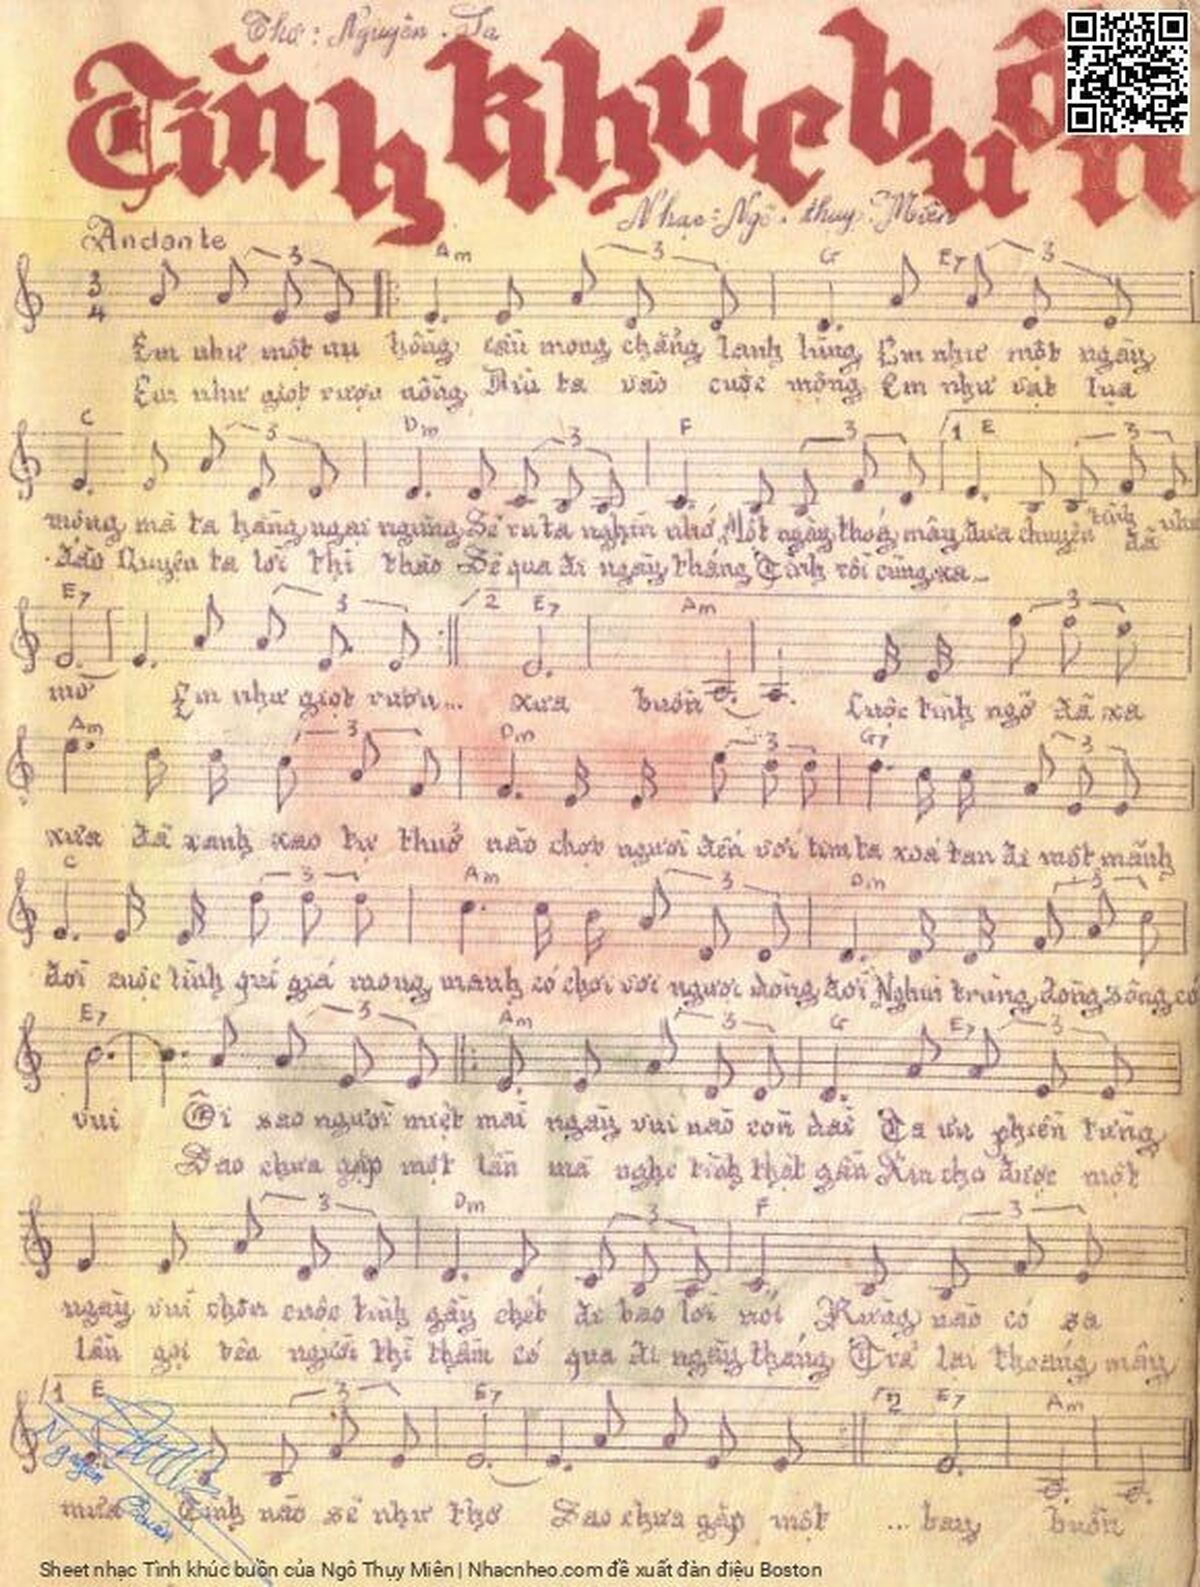 Thơ: Nguyên Sa
Tình khúc buồn
Nhạc: Ngô. thuỵ. Miên
Andante
3 Am 3 G E7 3
3
4
Em như một nụ hồng cầu mong chẳng lạnh lùng Em như một ngày
Em như giọt rượu nồng Dìu ta vào cuộc mộng Em như vạt lụa
C 3 Dm 3 F 3 1 E 3
mông mà ta hằng ngại ngùng Sẽ ru ta nghìn nhớ Một ngày thoáng mây đưa chuyện tình đã như
đào Quyện ta lời thì thào Sẽ qua đi ngày tháng Tình rồi cũng xa_
E7 3 2 E7 Am 3
mơ Em như giọt rượu... xưa buồn Cuộc tình ngỡ đã xa
Am 3 Dm 3 G7 3
xưa đã xanh xao tự thuở nào chơi người đến với tim ta xoá tan đi một mảnh
C 3 Am 3 Dm 3
đời cuộc tình quí giá mong manh có chơi vơi người dòng đời Nghìn trùng dòng sông có
E7 3 Am 3 G E7 3
vui Ôi sao người miệt mài ngày vui nào còn dài Ta ưu phiền từng
Sao chưa gặp một lần mà nghe tình thật gần Xin cho được một
3 Dm 3 F 3
ngày vui chôn cuộc tình gầy chết đi bao lời nói Rừng nào có sa
lần gọi tên người thì thầm có qua đi ngày tháng Trả lại thoáng mây
1 E 3 E7 2 E7 Am
mưa Tình nào sẽ như thơ Sao chưa gặp một ... bay buồn
Sheet nhạc Tình khúc buồn của Ngô Thụy Miên | Nhacnheo.com đề xuất đàn điệu Boston